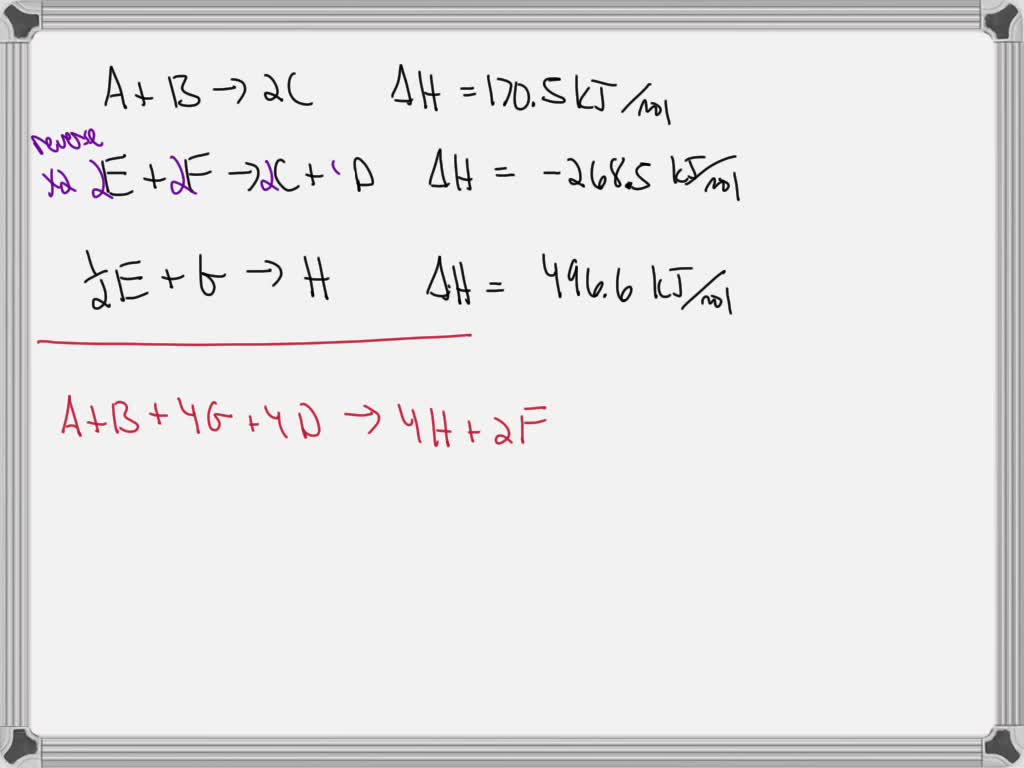 A + B → 2C ΔH = 170.5 kJ/mol
reverse
x2 2E + 2F → 2C + D ΔH = -268.5 kJ/mol
1/2E + G → H ΔH = 496.6 kJ/mol
A + B + 4G + 4D → 4H + 2F